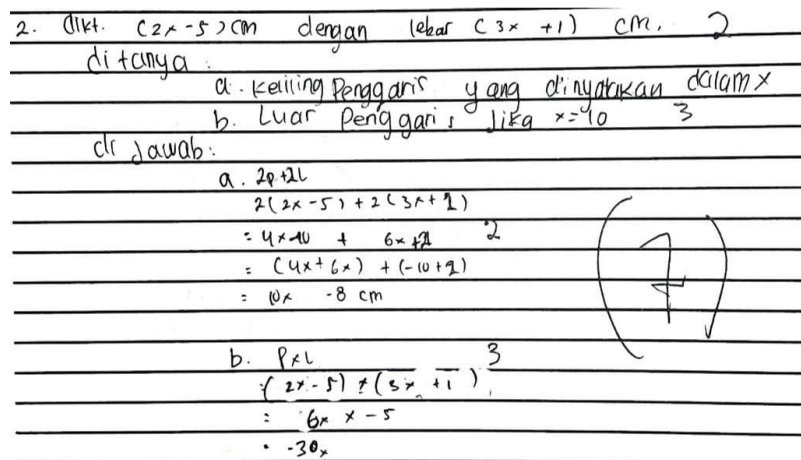 2. dikt. (2x-5) cm dengan lebar (3x +1) cm. 2
ditanya :
a. Keliling Penggaris yang dinyatakan dalam x
b. Luar Penggaris Jika x=10 3
di Jawab:
a. 2p+2L
2(2x-5) + 2(3x+1)
= 4x-10 + 6x+2 2
= (4x+6x) + (-10+2)
= 10x -8 cm
7
b. PxL 3
(2x-5) x (3x +1)
= 6x x -5
= -30x